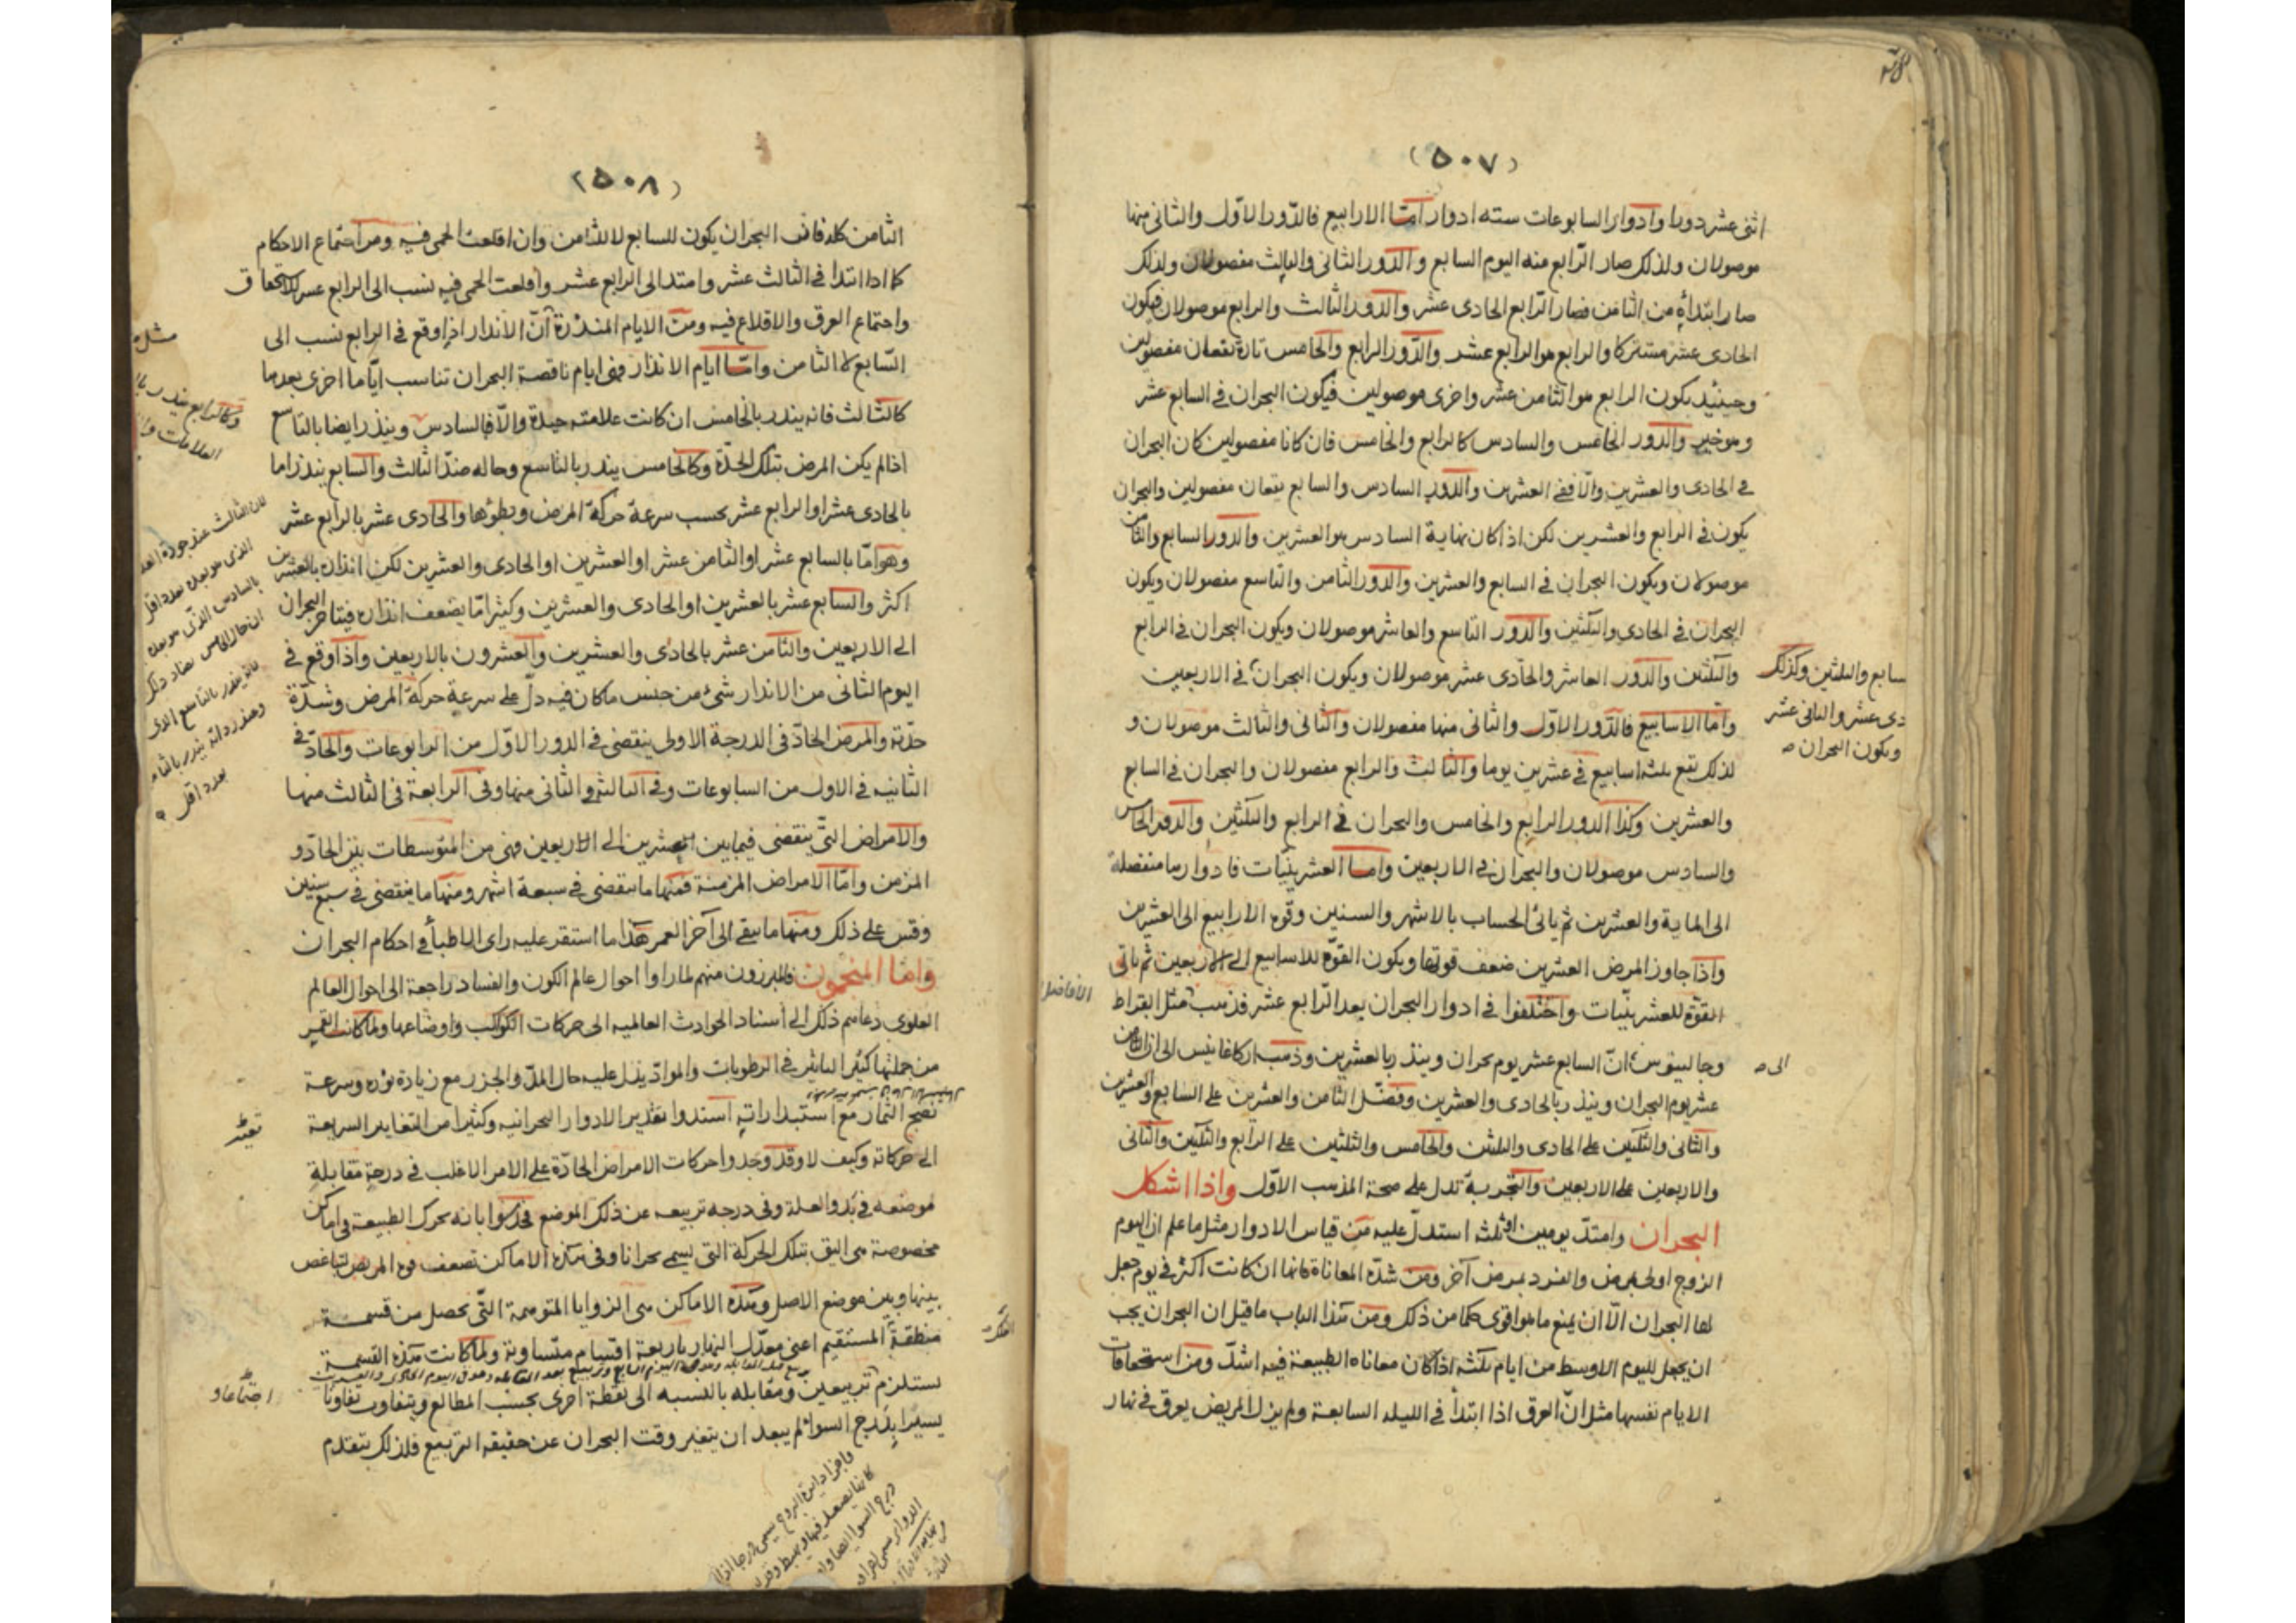 (٥٠٧)
اثنى عشر دورا وادوار السابوعات سته ادوار امّا الارابيع فالدّور الاوّل والثانى منها
موصولان ولذلك صار الرّابع منه اليوم السابع والدّور الثانى والثالث مفصولان ولذلك
صار ابتداؤه من الثامن فصار الرّابع الحادى عشر والدور الثالث والرابع موصولان فيكون
الحادى عشر مشتركا والرابع هو الرابع عشر والدّور الرابع والخامس تارة يقعان مفصولين
وحينئذ يكون الرابع هو الثامن عشر واخرى موصولين فيكون البحران فى السابع عشر
والدّور الخامس والسادس كالرابع والخامس فان كانا مفصولين كان البحران
فى الحادى والعشرين والّا ففى العشرين والدّور السادس والسابع يقعان مفصولين والبحران
يكون فى الرابع والعشرين لكن اذا كان نهاية السادس هو العشرين والدور السابع والثامن
موصولان ويكون البحران فى السابع والعشرين والدّور الثامن والتاسع مفصولان ويكون
البحران فى الحادى والثلثين والدّور التاسع والعاشر موصولان ويكون البحران فى الرابع
والثلثين والدّور العاشر والحادى عشر موصولان ويكون البحران فى الاربعين
سابع والثلثين وكذلك
دى عشر والثانى عشر
ويكون البحران
وامّا الاسابيع فالدّور الاوّل والثانى منها مفصولان والثانى والثالث موصولان و
لذلك تقع ثلثة اسابيع فى عشرين يوما والثالث والرابع مفصولان والبحران فى السابع
والعشرين وكذا الدور الرابع والخامس والبحران فى الرابع والثلثين والدور الخامس
والسادس موصولان والبحران فى الاربعين وامّا العشرينيّات فادوارها منفصلة
الى الماية والعشرين ثم يأتى الحساب بالاشهر والسنين وقوة الارابيع الى العشرين
واذا جاوز المرض العشرين ضعف قوتها ويكون القوّة للاسابيع الى الاربعين ثم ياتى
القوّة للعشرينيّات واختلفوا فى ادوار البحران بعد الرّابع عشر فذهب مثل ابقراط
الافاضل
وجالينوس انّ السابع عشر يوم بحران وينذر بالعشرين وذهب اركاغانيس الى ان الثامن
الى
عشر يوم البحران وينذر بالحادى والعشرين وفضّل الثامن والعشرين على السابع والعشرين
والثانى والثلثين على الحادى والثلثين والخامس والثلثين على الرابع والثلثين والثانى
والاربعين على الاربعين والتجربة تدل على صحة المذهب الاوّل واذا اشكل
البحران وامتدّ يومين او ثلثة استدلّ عليه من قياس الادوار مثل ما علم ان اليوم
الزوج اولى بمرض والفرد بمرض آخر ومن شدّة المعاناة فانها ان كانت اكثر فى يوم جعل
لها البحران الّا ان يمنع ما هو اقوى حكما من ذلك ومن هذا الباب ما قيل ان البحران يجب
ان يجعل لليوم الاوسط من ايام ثلثه اذا كان معاناه الطبيعة فيه اشدّ ومن استحقاقات
الايام نفسها مثل انّ العرق اذا ابتدأ فى الليله السابعة ولم يزل المريض يعرق فى نهار
(٥٠٨)
الثامن كله فانّ البحران يكون للسابع لا للثامن وان اقلعت الحمى فيه ومن اجتماع الاحكام
كما اذا ابتدأ فى الثالث عشر وامتد الى الرابع عشر واقلعت الحمى فيه نسب الى الرابع عشر للاستحقاق
واجتماع العرق والاقلاع فيه ومن الايام المنذرة انّ الانذار اذا وقع فى الرابع نسب الى
السّابع لا الثامن وامّا ايام الانذار فهى ايام ناقصة البحران تناسب ايّاما اخرى بعدها
كالثالث فانه ينذر بالخامس ان كانت علامته جيدة والّا فبالسادس وينذر ايضا بالتاسع
مثل
وكالرابع ينذر
العلامات
اذا لم يكن المرض بتلك الحدّة وكالخامس ينذر بالتاسع وحاله ضدّ الثالث والسابع ينذر اما
بالحادى عشر او الرابع عشر بحسب سرعة حركة المرض وبطؤها والحادى عشر بالرابع عشر
وهو امّا بالسابع عشر او الثامن عشر او العشرين او الحادى والعشرين لكن انذاره بالعشرين
اكثر والسابع عشر بالعشرين او الحادى والعشرين وكثيرا مّا يضعف انذاره فيتاخر البحران
الى الاربعين والثامن عشر بالحادى والعشرين والعشرون بالاربعين واذا وقع فى
اليوم الثانى من الانذار شئ من جنس ما كان فيه دلّ على سرعة حركة المرض وشدّة
حدّته والمرض الحادّ فى الدرجة الاولى ينقضى فى الدور الاوّل من الرابوعات والحادّ فى
الثانيه فى الاول من السابوعات وفى الثالثة فى الثانى منها وفى الرابعة فى الثالث منها
لان الثالث عند جودة
الذى هو بعده بعدد اقل
بالسادس الذى هو بعده
بعدد اقل
والامراض التى ينقضى فيما بين العشرين الى الاربعين فهى من المتوسطات بين الحادّ و
المزمن وامّا الامراض المزمنة فمنها ما ينقضى فى سبعة اشهر ومنها ما ينقضى فى سبع سنين
وقس على ذلك ومنها ما يبقى الى آخر العمر هذا ما استقر عليه راى الاطباء فى احكام البحران
وامّا المنجمون فالمبرزون منهم لما راوا احوال عالم الكون والفساد راجعة الى احوال العالم
العلوى دعاهم ذلك الى اسناد الحوادث العالميه الى حركات الكواكب واوضاعها ولما كانت القمر
من جملتها كثير التاثير فى الرطوبات والموادّ يدل عليه حال المدّ والجزر مع زيادة نوره وسرعة
نضج الثمار مع استبداراته اسندوا تقدير الادوار البحرانيه وكثيرا من التغاير السريعة
الى حركاته وكيف لا وقد وجدوا حركات الامراض الحادّة على الامر الاغلب فى درجة مقابلة
موضعه فى بدو العلة وفى درجه تربيعه عن ذلك الموضع فحدسوا بانه يحرك الطبيعة فى اماكن
مخصوصة هى اليق بتلك الحركة التى يسمى بحرانا وفى هذه الاماكن تضعف قوة المريض
بينها وبين موضع الاصل وهذه الاماكن هى الزوايا المتوهمة التّى تحصل من قسمة
منطقة المستقيم اعنى معدّل النهار باربعة اقسام متساوية ولما كانت هذه القسمة
الفلك
يستلزم تربيعين ومقابله بالنسبه الى نقطة اخرى بحسب المطالع ويتفاوت تفاوتا
اجتماعا و
يسيرا بدرج السوا لم يبعد ان يتغير وقت البحران عن حقيقه التربيع فلذلك يتقدم